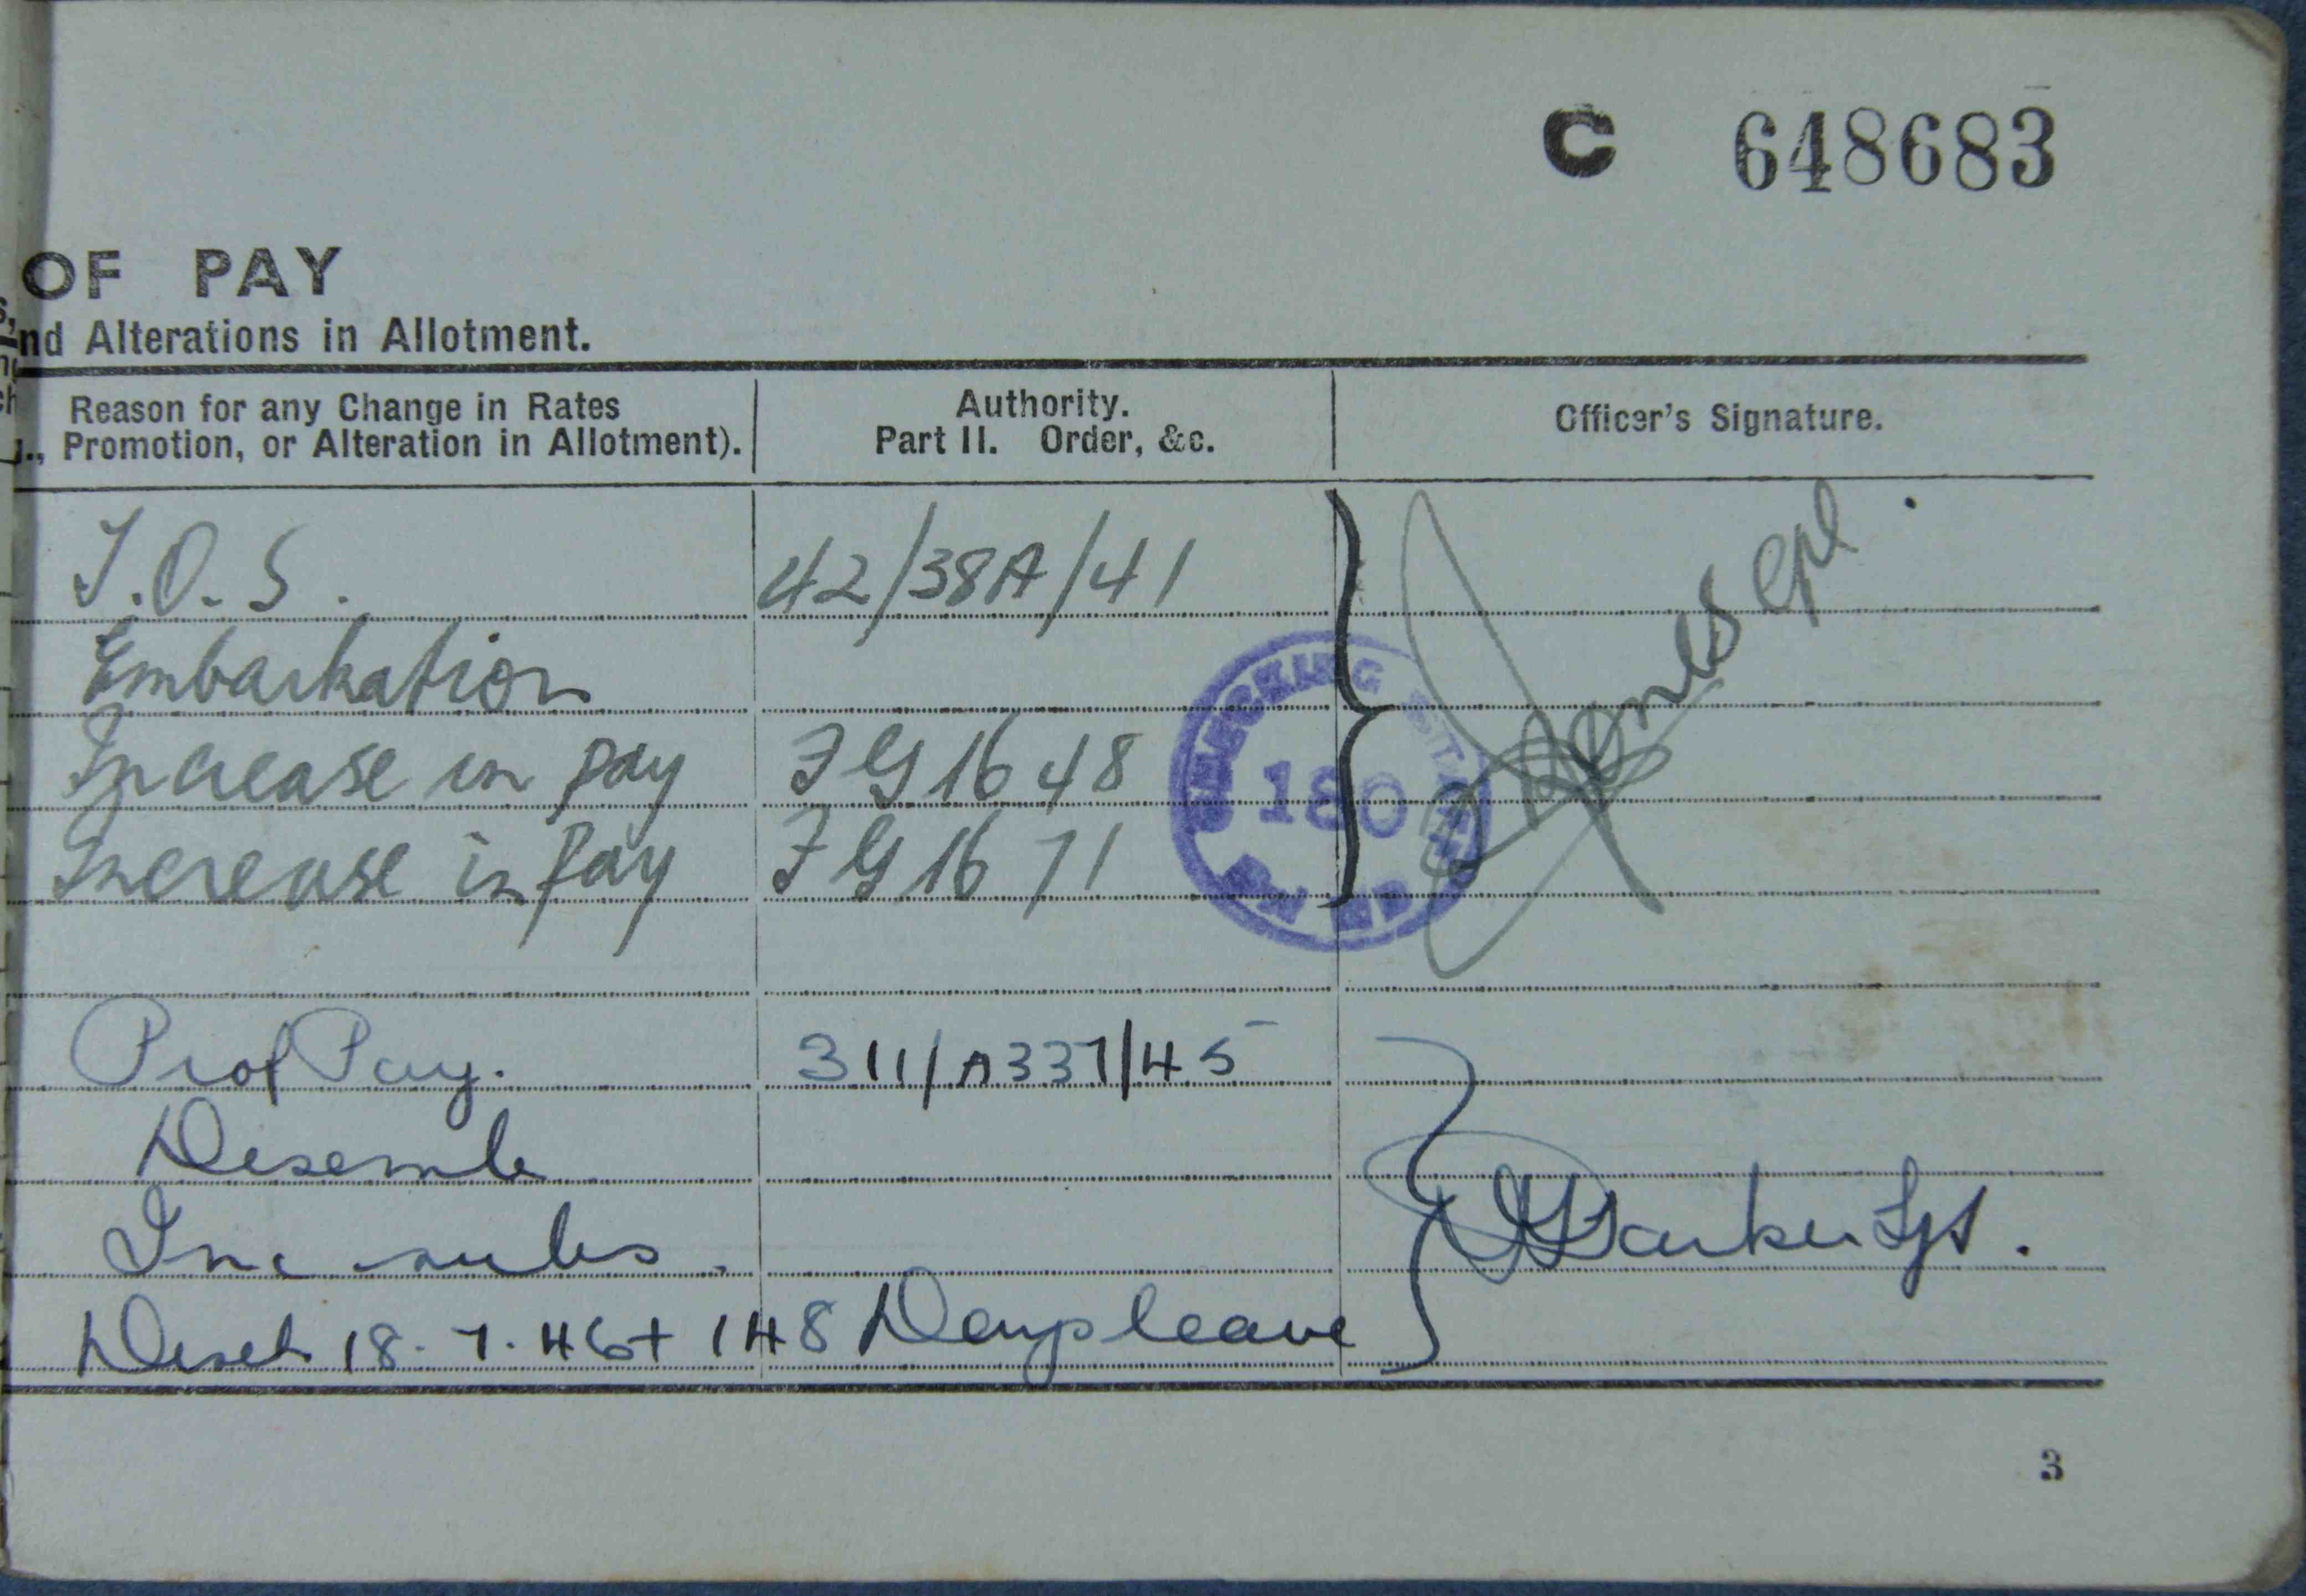 C 648683
OF PAY
nd Alterations in Allotment.
Reason for any Change in Rates
Promotion, or Alteration in Allotment).
Authority.
Part II. Order, &c.
Officer's Signature.
T.O.S. 42/38A/41
Embarkation
Increase in pay FG 1648
Increase in pay FG 1671
Jones Cpl.
CHECKING
180
Prof Pay. 311/A337/45
Disemb
Inc subs.
Parker Sgt.
Disch 18.7.46 + 148 Days leave
3